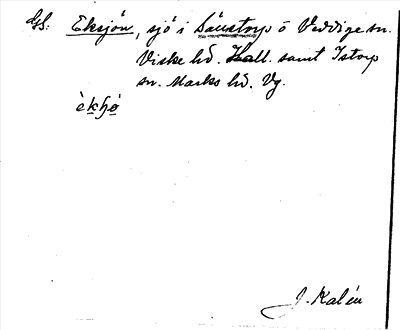 Gs: Eksjön, sjö i Såustorp ö Veddige sn.
Viske hd. Hall. samt Istorp
sn. Marks hd. Vg.
J. Kalén